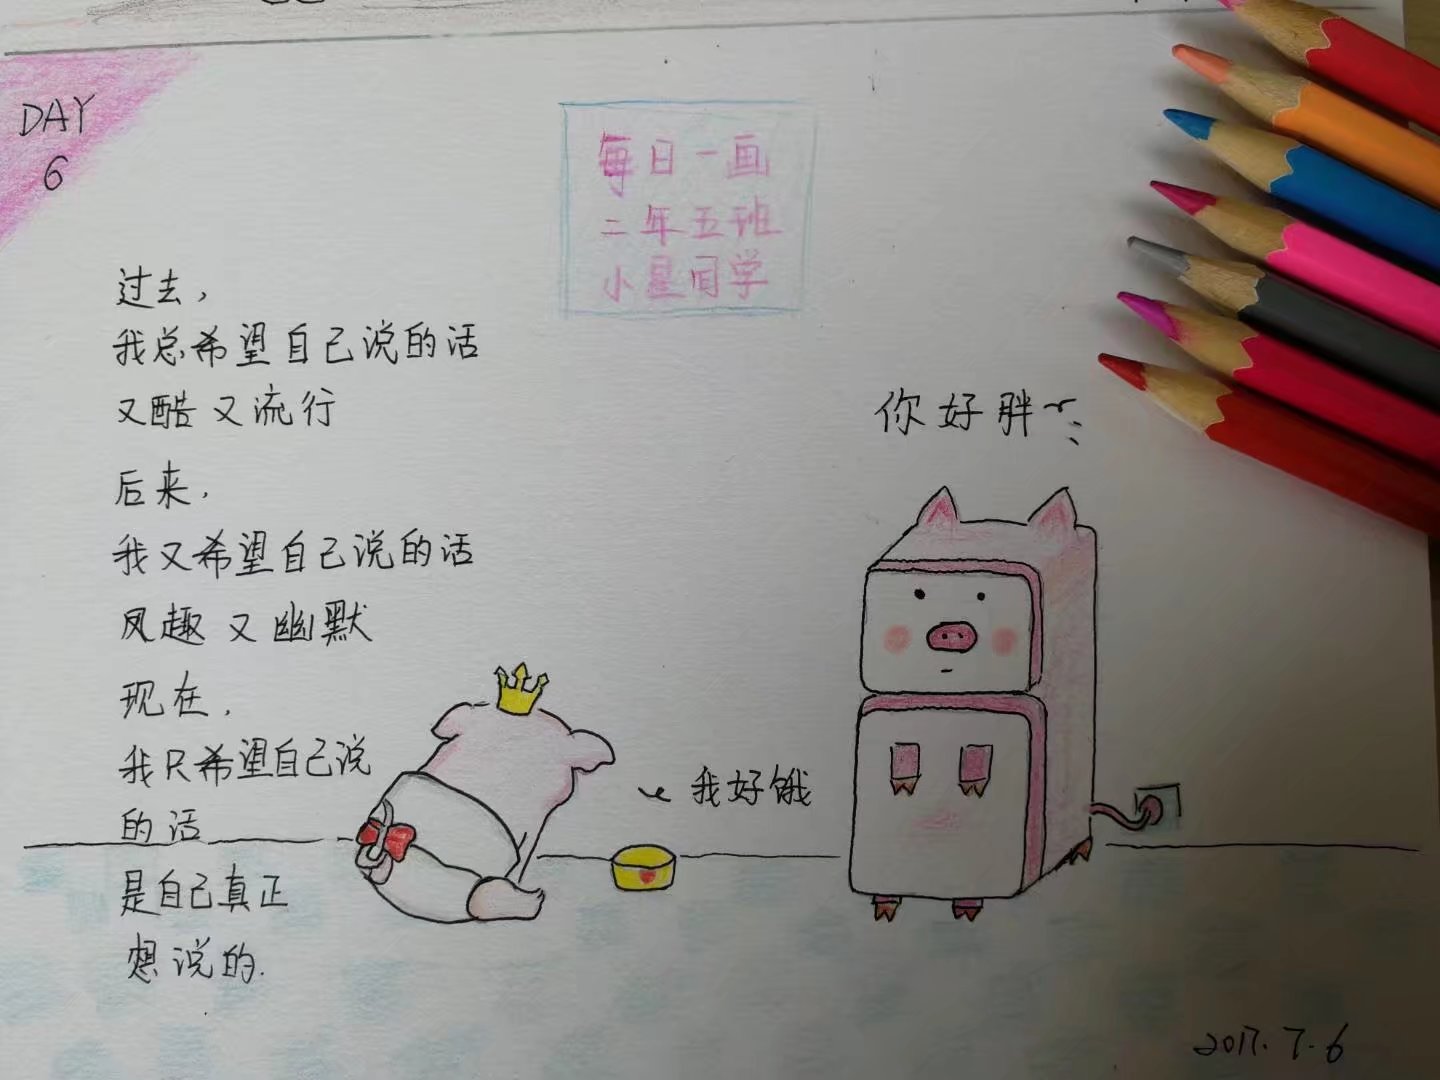 DAY
6
每日一画
二年五班
小星同学
过去,
我总希望自己说的话
又酷又流行
后来,
我又希望自己说的话
风趣又幽默
现在,
我只希望自己说
的话
是自己真正
想说的.
你好胖~
我好饿
2017.7.6